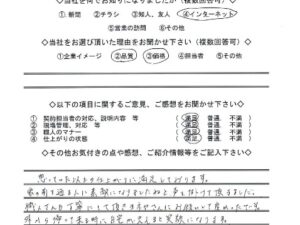 ◇当社を何でお知りになりましたか（複数回答可）◇
①.新聞 ②チラシ ③知人、友人 ④インターネット
⑤営業の訪問 ⑥その他
◇当社をお選び頂いた理由をお聞かせ下さい（複数回答可）◇
①企業イメージ ②品質 ③価格 ④担当者 ⑤その他
◇以下の項目に関するご意見、ご感想をお聞かせ下さい◇
1) 契約担当者の対応、説明内容 等 ( 満足 普通 不満 )
2) 現場管理、対応 等 ( 満足 普通 不満 )
3) 職人のマナー ( 満足 普通 不満 )
4) 仕上がりの状態 ( 満足 普通 不満 )
◇その他お気付きの点や感想、ご紹介情報等をご記入下さい◇
思っていた以上の仕上がりに満足しております。
家の前を通る人に素敵になりましたねと声をかけて頂きました。
職人さんも丁寧にして頂き
外から帰って来る時に自宅が見えると笑顔になります。